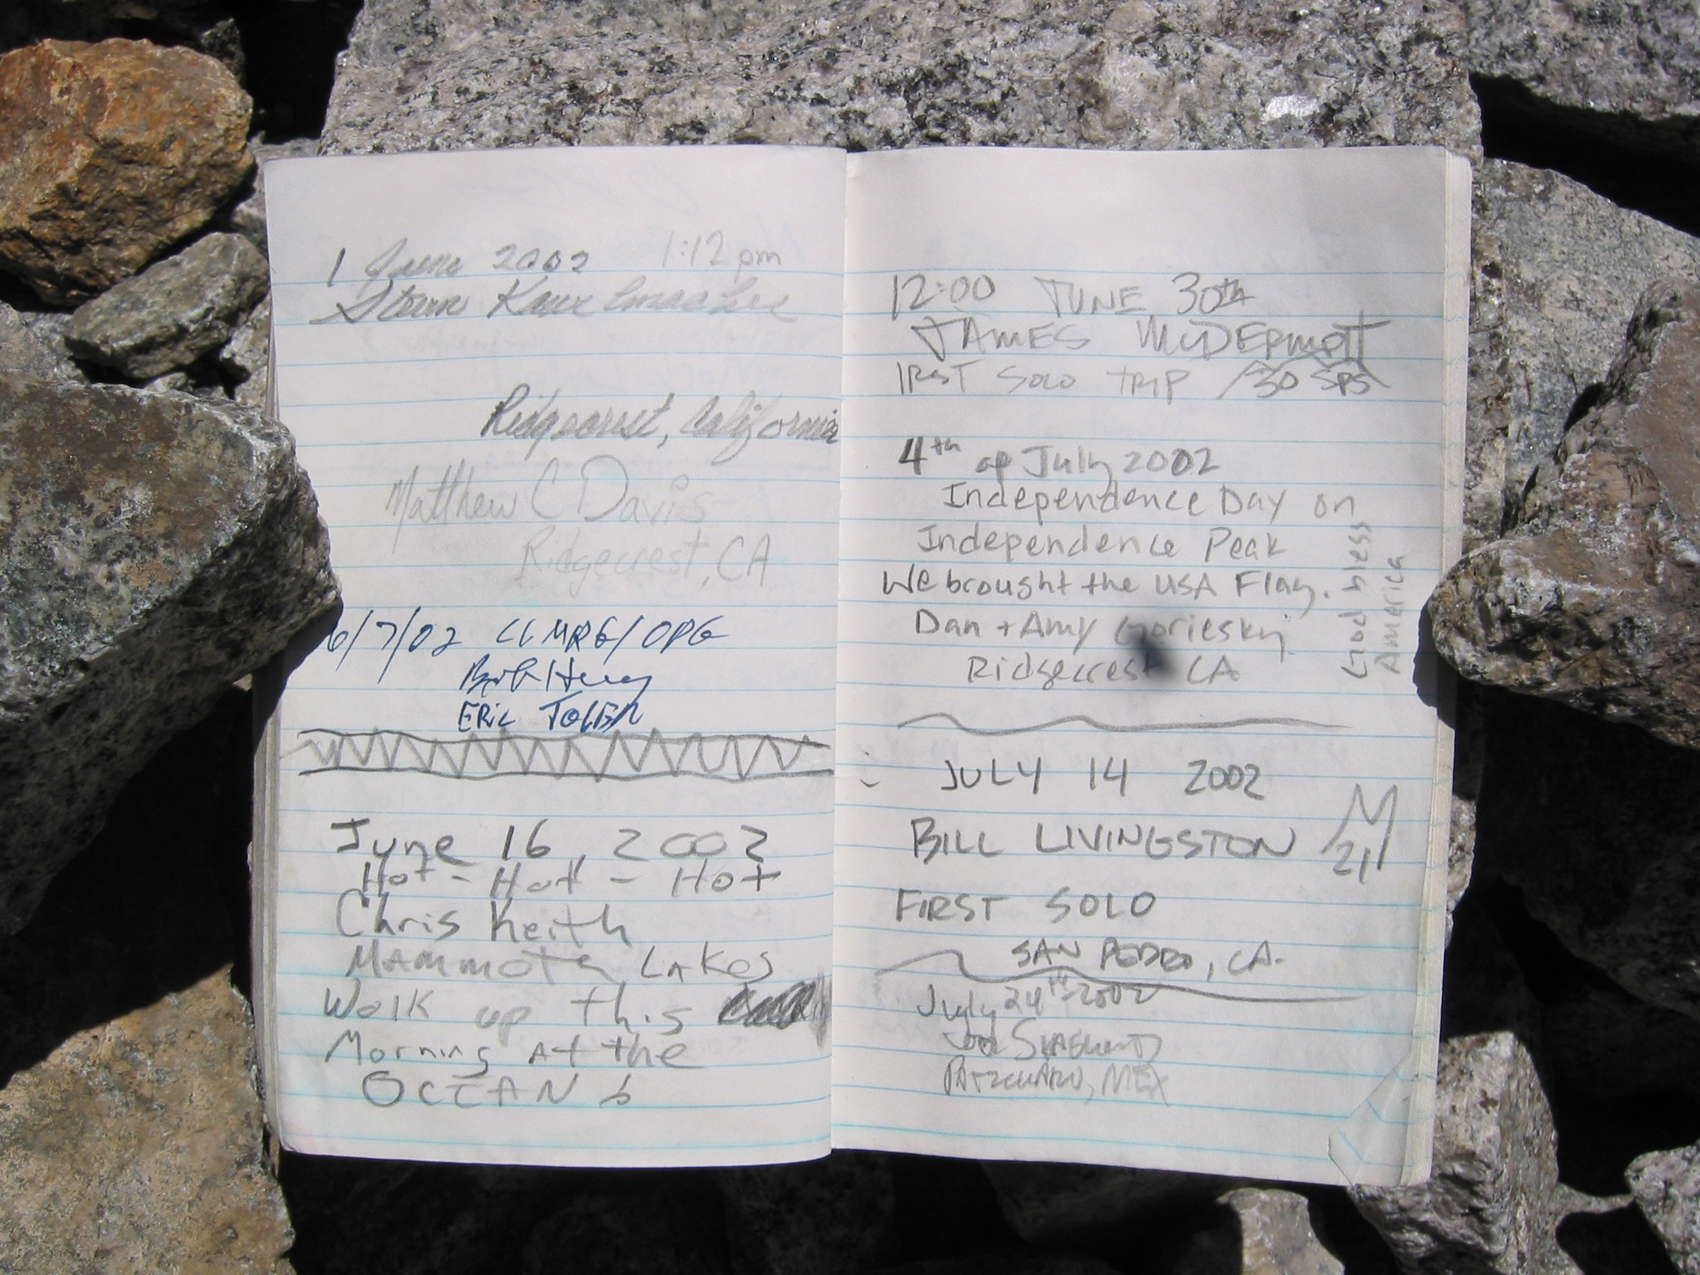 1 June 2002 1:12 pm
Ridgecrest, California
Matthew C Davis
Ridgecrest, CA
6/7/02 CLMRG/OPG
Bob Huey
ERIC
June 16, 2002
Hot - Hot - Hot
Chris Keith
MAMMOTH LAKES
Walk up this
Morning At the
OCEAN
12:00 JUNE 30th
JAMES McDERMOTT
1RST SOLO TRIP 30 SPS
4th of July 2002
Independence Day on
Independence Peak
We brought the USA Flag.
Dan + Amy
Ridgecrest CA
God bless
America
JULY 14 2002
BILL LIVINGSTON
21
FIRST SOLO
SAN PEDRO, CA.
July 24th 2002
MEX